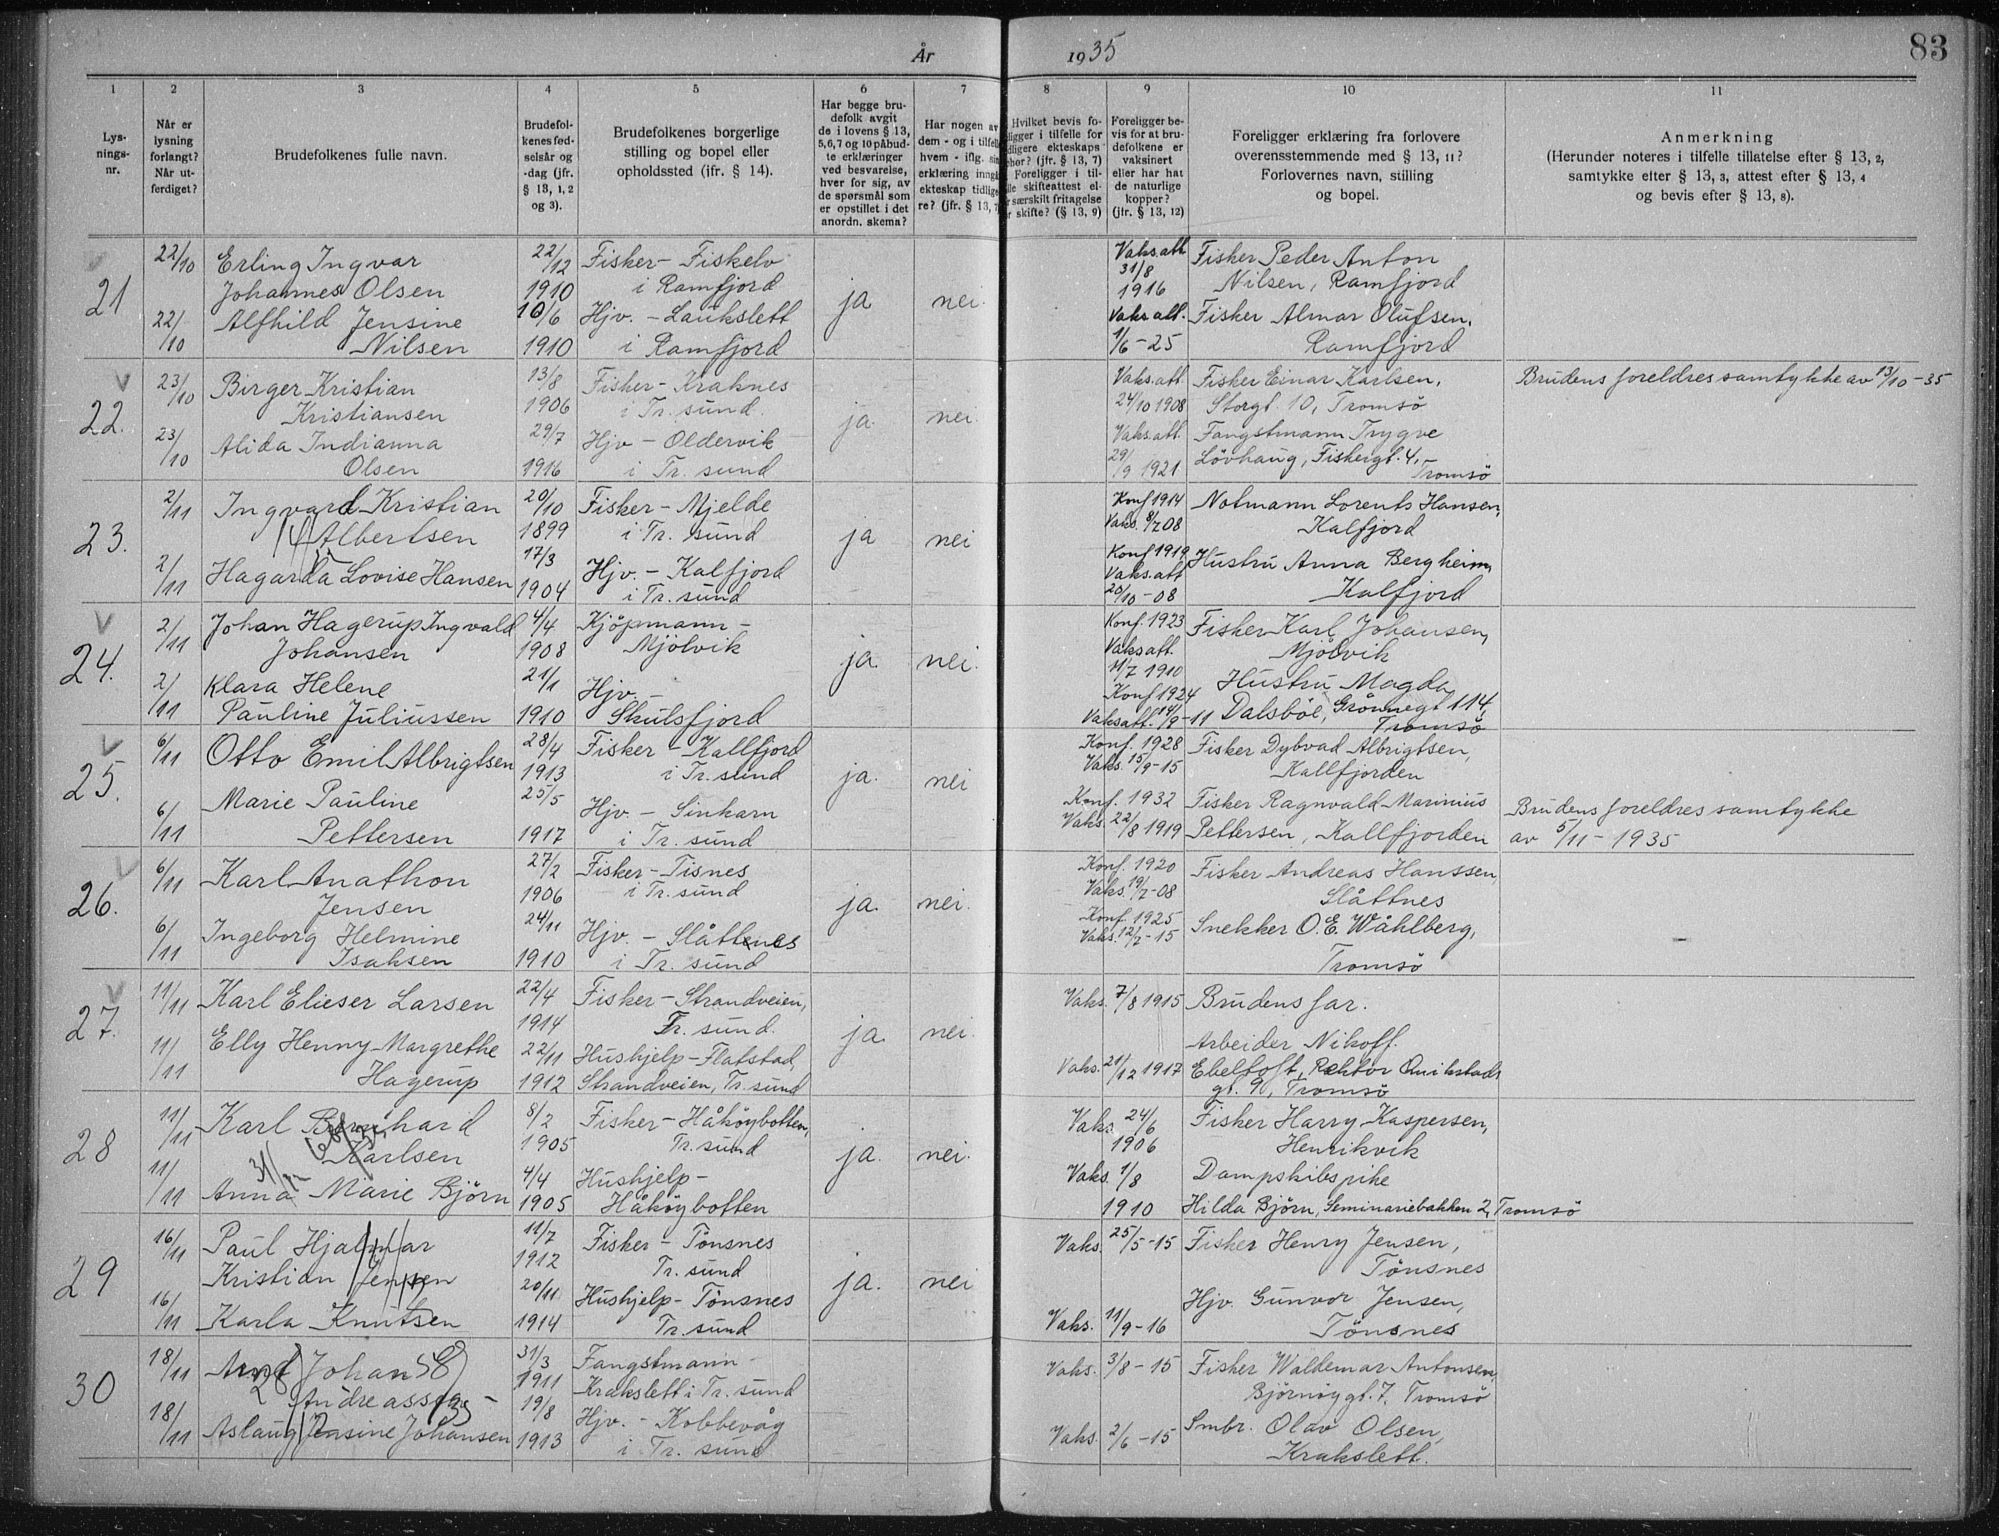 År 1935
83
1 2 3 4 5 6 7 8 9 10 11
Lysnings-nr.
Når er lysning forlangt? Når utferdiget?
Brudefolkenes fulle navn.
Brudefolkenes fødselsår og -dag (jfr. § 13, 1, 2 og 3).
Brudefolkenes borgerlige stilling og bopel eller opholdssted (ifr. § 14).
Har begge brudefolk avgit de i lovens § 13, 5,6,7 og 10 påbudte erklæringer ved besvarelse, hver for sig, av de spørsmål som er opstillet i det anordn. skema?
Har nogen av dem - og i tilfelle hvem - iflg. sin erklæring inngått ekteskap tidligere? (jfr. § 13, 7
Hvilket bevis foreligger i tilfelle for tidligere ekteskaps ophør? (jfr. § 13, 7) Foreligger i tilfelle skifteattest eller særskilt fritagelse for skifte? (§ 13, 9)
Foreligger bevis for at brudefolkene er vaksinert eller har hat de naturlige kopper? (jfr. § 13, 12)
Foreligger erklæring fra forlovere overensstemmende med § 13, 11? Forlovernes navn, stilling og bopel.
Anmerkning (Herunder noteres i tilfelle tillatelse efter § 13, 2, samtykke efter § 13, 3, attest efter § 13, 4 og bevis efter § 13, 8).
21
22/10 Erling Ingvar 22/12 Fisker - Fiskelv Vaks.att Fisker Peder Anton
Johannes Olsen 1910 i Ramfjord ja nei. 31/8 1916 Nilsen, Ramfjord
22/10 Alfhild Jensine 10/6 Hjv. - Laukslett Vaks att. Fisker Almar Olufsen,
Nilsen 1910 i Ramfjord 1/6-25 Ramfjord
22.
23/10 Birger Kristian 13/8 Fisker - Kraknes Vaks.att Fisker Einar Karlsen, Brudens foreldres samtykke av 13/10-35
Kristiansen 1906 i Tr. sund. ja. nei. 24/10 1908 Storgt. 10, Tromsö
23/10 Alida Indianna 29/7 Hjv - Oldervik Vaks.att. Fangstmann Trygve
Olsen 1916 i Tr. sund 29/9 1921 Lövhaug, Fiskergt. 4, Tromsö
23.
2/11 Ingvard Kristian 20/10 Fisker - Mjelde Konf 1914 Notmann Lorents Hansen,
Albertsen 1899 i Tr. sund ja nei Vaks. 8/7 08 Kalfjord
2/11 Hagarda Lovise Hansen 17/3 Hjv. - Kalfjord Konf 1919 Hustru Anna Bergheim,
1904 i Tr. sund Vaks.att 20/10-08 Kalfjord
24.
2/11 Johan Hagerup Ingvald 4/4 Kjöpmann - Konf 1923 Fisker Karl Johansen,
Johansen 1908 Mjölvik ja. nei. Vaks att. 11/7 1910 Mjölvik
2/11 Klara Helene 21/1 Hjv. - Konf 1924 Hustru Magda
Pauline Juliussen 1910 Skulsfjord Vaksatt. 14/9-11 Dalsböe, Grönnegt 114, Tromsö
25.
6/11 Otto Emil Albrigtsen 28/4 Fisker - Kallfjord Konf. 1928 Fisker Dybvad Albrigtsen,
1913 i Tr. sund ja. nei Vaks. 15/9-15 Kallfjorden
6/11 Marie Pauline 25/5 Hjv. - Sinkarn Konf. 1932 Fisker Ragnvald Marinius Brudens foreldres samtykke
Pettersen 1917 i Tr. sund Vaks. 22/8 1919 Pettersen, Kallfjorden av 5/11-1935
26.
6/11 Karl Anathon 27/2 Fisker - Tisnes Konf. 1920 Fisker Andreas Hanssen,
Jensen 1906 i Tr. sund ja. nei. Vaks. 19/7-08 Slåttnes
6/11 Ingeborg Helmine 24/11 Hjv. - Slåttnes Konf. 1925 Snekker O.E. Wåhlberg, -
Isaksen 1910 i Tr. sund Vaks. 12/7-15 Tromsö
27.
11/11 Karl Elieser Larsen 22/4 Fisker - Strandveien, Vaks. 7/8 1915 Brudens far.
1914 Tr. sund. ja. nei. Arbeider Nikoff.
11/11 Elly Henny Margrethe 22/11 Hushjelp - Flatstad, Vaks. 21/12 1917 Ebeltoft, Rektor Qvikstads
Hagerup 1912 Strandveien, Tr. sund gt. 9, Tromsö
28
11/11 Karl Bernhard 8/2 Fisker - Håköybotten, Vaks 24/6 Fisker Harry Kaspersen,
Karlsen 1905 Tr. sund ja. nei. 1906 Henrikvik
11/11 Anna Marie Björn 4/4 Hushjelp - Vaks 1/8 Dampskibspike
1905 Håköybotten 1910 Hilda Björn, Seminariebakken 2, Tromsö
29
16/11 Paul Hjalmar 11/7 Fisker - Tönsnes Vaks. 25/5-15 Fisker Henry Jensen,
Kristian Jensen 1912 Tr. sund ja. nei Tönsnes
16/11 Karla Knutsen 20/11 Hushjelp - Tönsnes Hjv. Gunvor Jensen,
1914 Tr. sund Vaks. 11/9-16 Tönsnes
30
18/11 Johan 31/3 Fangstmann - Vaks. 3/8-15 Fisker Waldemar Antonsen,
Andreassen 1911 Krakslett i Tr. sund Björnöygt. 7, Tromsö
18/11 Aslaug Jensine Johansen 19/8 Hjv. - Kobbevåg Smbr. Olav Olsen,
1913 i Tr. sund Vaks. 2/6-15 Krakslett.